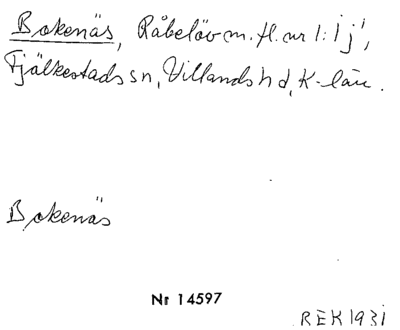 Bokenäs, Råbelöv m. fl. nr 1:1 j',
Fjälkestads sn, Villands hd, K-län.
Bokenäs
Nr 14597
REK 1931